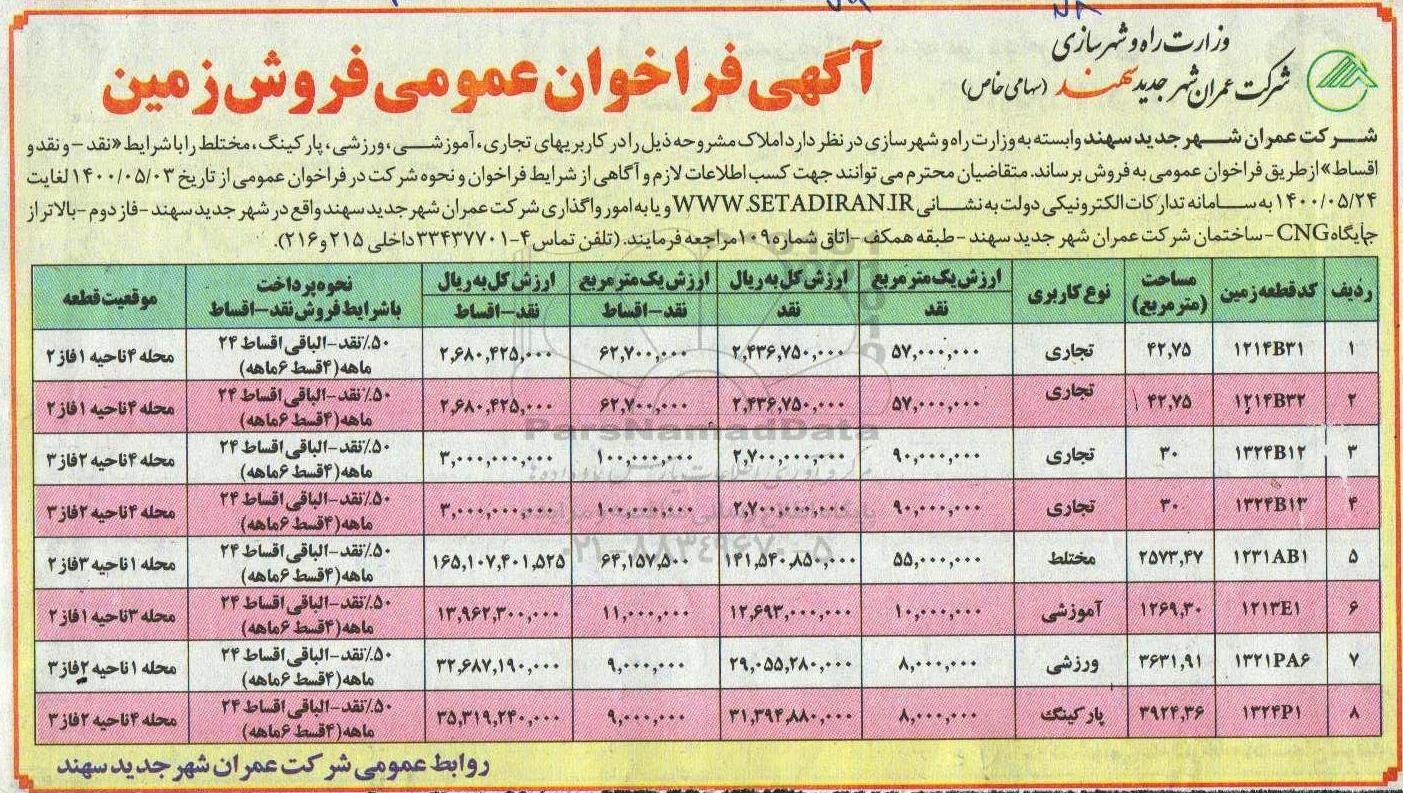 وزارت راه و شهرسازی
شرکت عمران شهر جدید سهند (سهامی خاص)
آگهی فراخوان عمومی فروش زمین
شرکت عمران شهر جدید سهند وابسته به وزارت راه و شهرسازی در نظر دارد املاک مشروحه ذیل را در کاربریهای تجاری، آموزشی، ورزشی، پارکینگ، مختلط را با شرایط «نقد - و نقد و
اقساط» از طریق فراخوان عمومی به فروش برساند. متقاضیان محترم می توانند جهت کسب اطلاعات لازم و آگاهی از شرایط فراخوان و نحوه شرکت در فراخوان عمومی از تاریخ ۱۴۰۰/۰۵/۰۳ لغایت
۱۴۰۰/۰۵/۲۴ به سامانه تدارکات الکترونیکی دولت به نشانی WWW.SETADIRAN.IR و یا به امور واگذاری شرکت عمران شهر جدید سهند واقع در شهر جدید سهند - فاز دوم - بالاتر از
جایگاه CNG - ساختمان شرکت عمران شهر جدید سهند - طبقه همکف - اتاق شماره ۱۰۹ مراجعه فرمایند. (تلفن تماس ۴-۳۳۴۳۷۷۰۱ داخلی ۲۱۵ و ۲۱۶).
ردیف کد قطعه زمین مساحت (متر مربع) نوع کاربری ارزش یک متر مربع نقد ارزش کل به ریال نقد ارزش یک متر مربع نقد-اقساط ارزش کل به ریال نقد-اقساط نحوه پرداخت با شرایط فروش نقد-اقساط موقعیت قطعه
۱ ۱۲۱۴B۳۱ ۴۲,۷۵ تجاری ۵۷,۰۰۰,۰۰۰ ۲,۴۳۶,۷۵۰,۰۰۰ ۶۲,۷۰۰,۰۰۰ ۲,۶۸۰,۴۲۵,۰۰۰ ۵۰٪ نقد-الباقی اقساط ۲۴ ماهه (۴قسط ۶ماهه) محله ۴ ناحیه ۱ فاز ۲
۲ ۱۲۱۴B۳۲ ۴۲,۷۵ تجاری ۵۷,۰۰۰,۰۰۰ ۲,۴۳۶,۷۵۰,۰۰۰ ۶۲,۷۰۰,۰۰۰ ۲,۶۸۰,۴۲۵,۰۰۰ ۵۰٪ نقد-الباقی اقساط ۲۴ ماهه (۴قسط ۶ماهه) محله ۴ ناحیه ۱ فاز ۲
۳ ۱۳۲۴B۱۲ ۳۰ تجاری ۹۰,۰۰۰,۰۰۰ ۲,۷۰۰,۰۰۰,۰۰۰ ۱۰۰,۰۰۰,۰۰۰ ۳,۰۰۰,۰۰۰,۰۰۰ ۵۰٪ نقد-الباقی اقساط ۲۴ ماهه (۴قسط ۶ماهه) محله ۴ ناحیه ۲ فاز ۳
۴ ۱۳۲۴B۱۳ ۳۰ تجاری ۹۰,۰۰۰,۰۰۰ ۲,۷۰۰,۰۰۰,۰۰۰ ۱۰۰,۰۰۰,۰۰۰ ۳,۰۰۰,۰۰۰,۰۰۰ ۵۰٪ نقد-الباقی اقساط ۲۴ ماهه (۴قسط ۶ماهه) محله ۴ ناحیه ۲ فاز ۳
۵ ۱۲۳۱AB۱ ۲۵۷۳,۴۷ مختلط ۵۵,۰۰۰,۰۰۰ ۱۴۱,۵۴۰,۸۵۰,۰۰۰ ۶۴,۱۵۷,۵۰۰ ۱۶۵,۱۰۷,۴۰۱,۵۲۵ ۵۰٪ نقد-الباقی اقساط ۲۴ ماهه (۴قسط ۶ماهه) محله ۱ ناحیه ۳ فاز ۲
۶ ۱۲۱۳E۱ ۱۲۶۹,۳۰ آموزشی ۱۰,۰۰۰,۰۰۰ ۱۲,۶۹۳,۰۰۰,۰۰۰ ۱۱,۰۰۰,۰۰۰ ۱۳,۹۶۲,۳۰۰,۰۰۰ ۵۰٪ نقد-الباقی اقساط ۲۴ ماهه (۴قسط ۶ماهه) محله ۳ ناحیه ۱ فاز ۲
۷ ۱۳۲۱PA۶ ۳۶۳۱,۹۱ ورزشی ۸,۰۰۰,۰۰۰ ۲۹,۰۵۵,۲۸۰,۰۰۰ ۹,۰۰۰,۰۰۰ ۳۲,۶۸۷,۱۹۰,۰۰۰ ۵۰٪ نقد-الباقی اقساط ۲۴ ماهه (۴قسط ۶ماهه) محله ۱ ناحیه ۲ فاز ۳
۸ ۱۳۲۴P۱ ۳۹۲۴,۳۶ پارکینگ ۸,۰۰۰,۰۰۰ ۳۱,۳۹۴,۸۸۰,۰۰۰ ۹,۰۰۰,۰۰۰ ۳۵,۳۱۹,۲۴۰,۰۰۰ ۵۰٪ نقد-الباقی اقساط ۲۴ ماهه (۴قسط ۶ماهه) محله ۴ ناحیه ۲ فاز ۳
ParsNamadData
۰۲۱-۸۸۳۴۹۶۷۰-۵
روابط عمومی شرکت عمران شهر جدید سهند